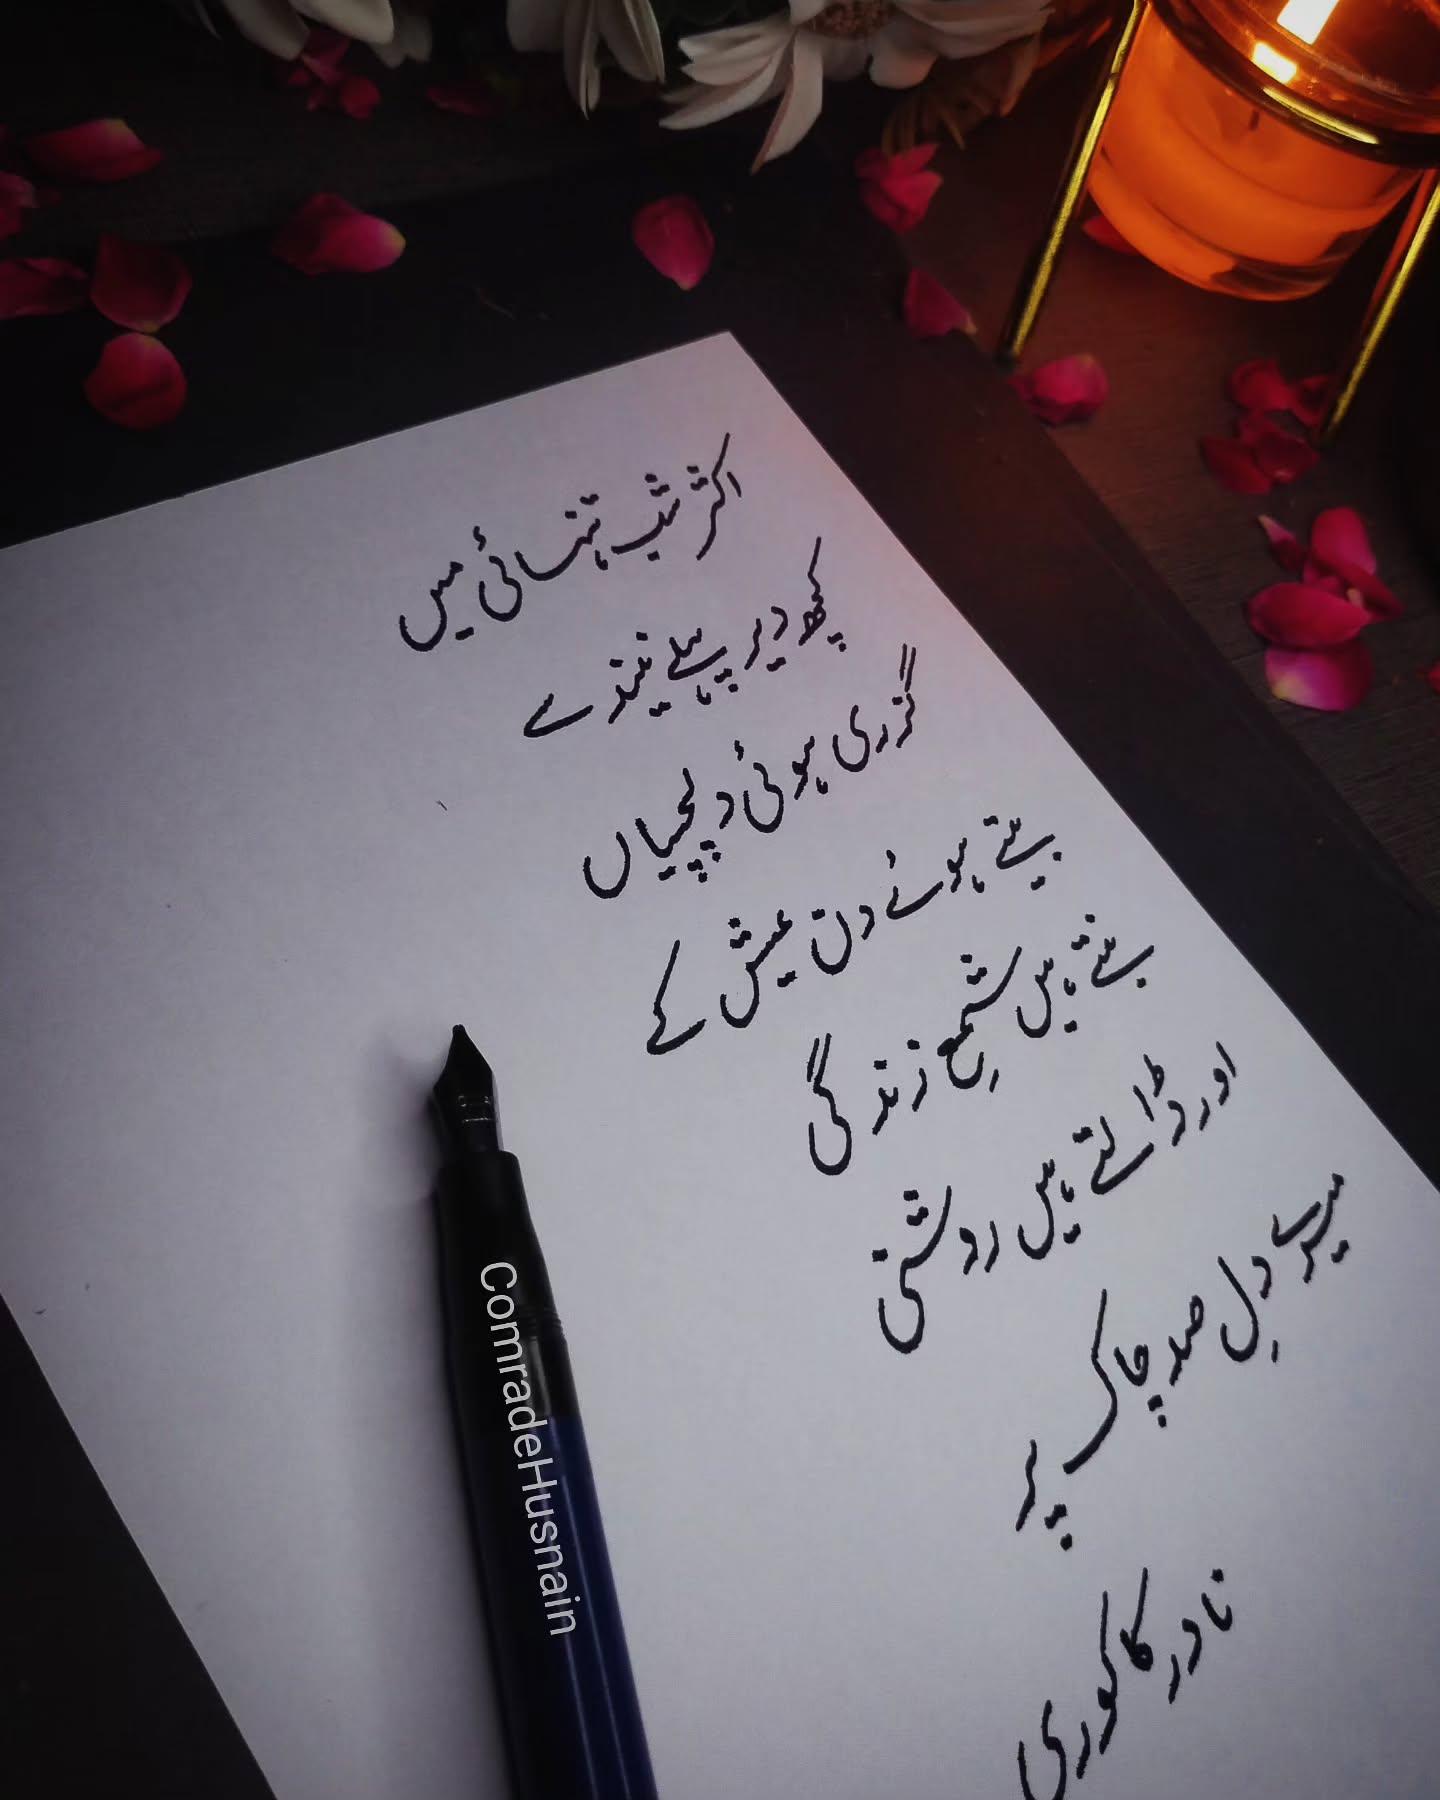 اکثر شب تنہائی میں
کچھ دیر پہلے نیند سے
گزری ہوئی دلچسپیاں
بیتے ہوئے دن عیش کے
بنتے ہیں شمعِ زندگی
اور ڈالتے ہیں روشنی
میرے دلِ صد چاک پر
نادر کاکوری
ComradeHusnain